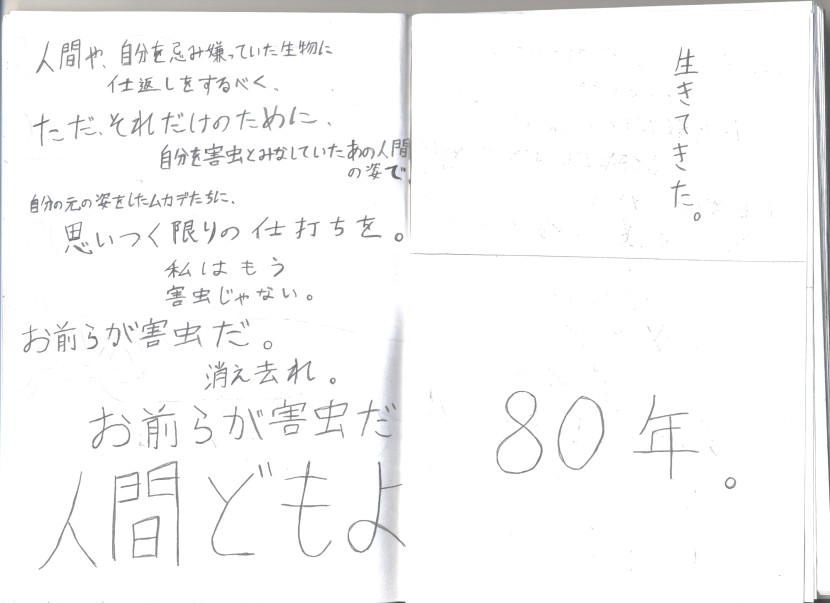 人間や、自分を忌み嫌っていた生物に
仕返しをするべく、
ただ、それだけのために、
自分を害虫とみなしていたあの人間
の姿で、
自分の元の姿をしたムカデたちに、
思いつく限りの仕打ちを。
私はもう
害虫じゃない。
お前らが害虫だ。
消え去れ。
お前らが害虫だ
人間どもよ
生きてきた。
80年。